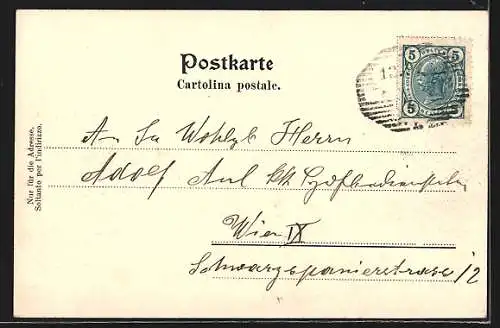 Postkarte
Cartolina postale.
5 5
5
12
Nur für die Adresse.
Soltanto per l'indirizzo.
An Sr Wohlgb Herrn
Adolf
Wien IX
Schwarzspanierstrasse 12